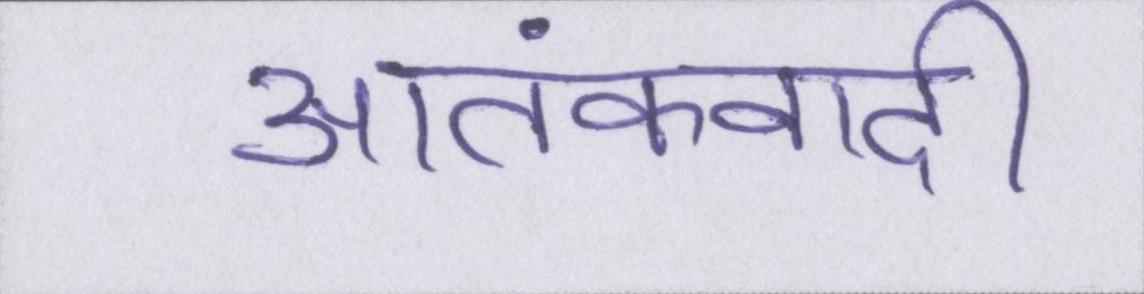 आतंकवादी